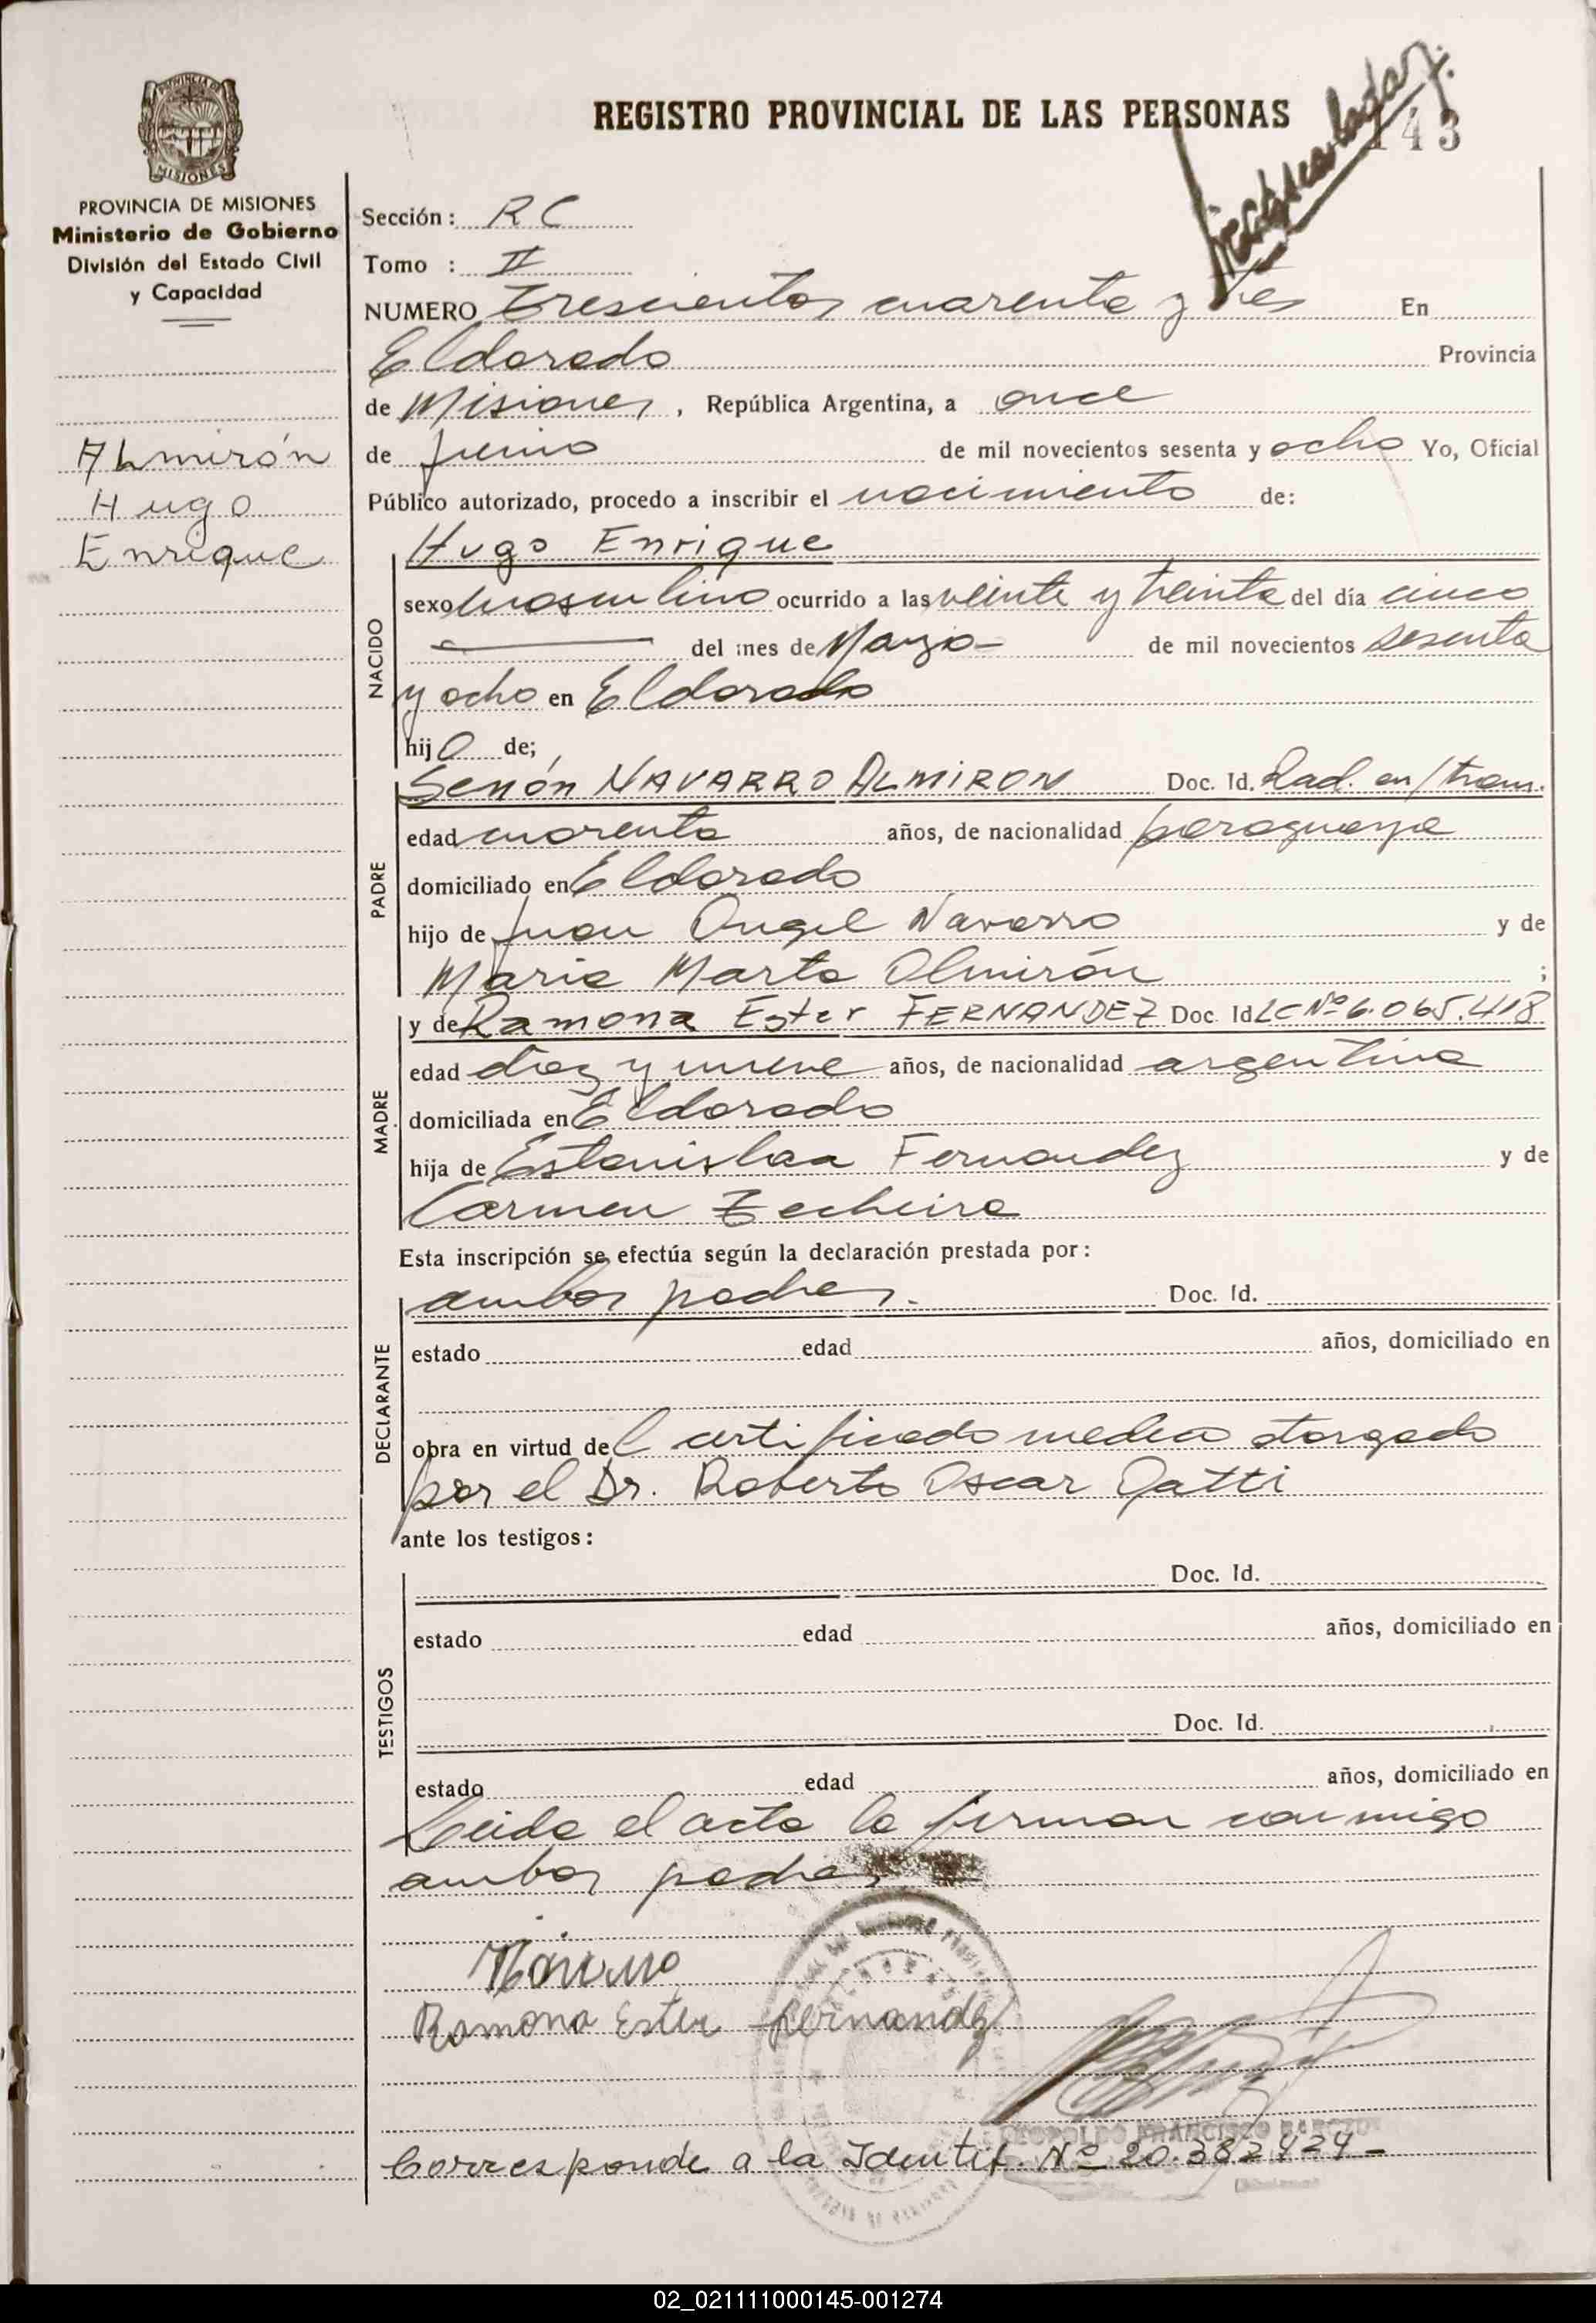 REGISTRO PROVINCIAL DE LAS PERSONAS
143
MISIONES
PROVINCIA DE MISIONES
Ministerio de Gobierno
División del Estado Civil
y Capacidad
Almirón
Hugo
Enrique
Sección: RC
Tomo : II
NUMERO Trescientos cuarenta y tres En
Eldorado Provincia
de Misiones, República Argentina, a once
de junio de mil novecientos sesenta y ocho Yo, Oficial
Público autorizado, procedo a inscribir el nacimiento de:
Hugo Enrique
NACIDO
sexo masculino ocurrido a las veinte y treinta del día cinco
del mes de Marzo de mil novecientos sesenta
y ocho en Eldorado
hijo de;
PADRE
Senón NAVARRO ALMIRON Doc. Id. Rad. en/tram.
edad cuarenta años, de nacionalidad paraguaya
domiciliado en Eldorado
hijo de Juan Angel Navarro y de
Maria Marta Almirón ;
MADRE
y de Ramona Ester FERNANDEZ Doc. Id LC Nº 6.065.418
edad diez y nueve años, de nacionalidad argentina
domiciliada en Eldorado
hija de Estanislaa Fernandez y de
Carmen Techeira
Esta inscripción se efectúa según la declaración prestada por:
DECLARANTE
ambos padres. Doc. Id.
estado edad años, domiciliado en
obra en virtud del certificado medico otorgado
por el Dr. Roberto Oscar Gatti
ante los testigos:
TESTIGOS
Doc. Id.
estado edad años, domiciliado en
Doc. Id.
estado edad años, domiciliado en
Leida el acta la firman conmigo
ambos padres
Ramona Ester Fernandez
LEOPOLDO FRANCISCO
Corresponde a la Identif. Nº 20.382.424-
02_021111000145-001274